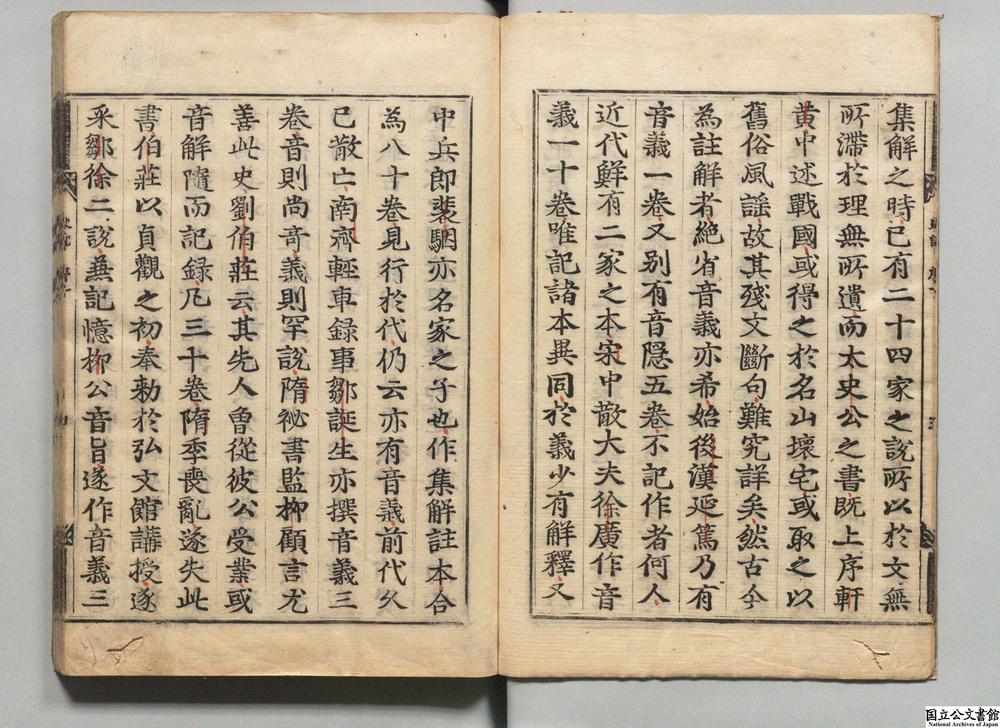 集解之時已有二十四家之說所以於文無
所滯於理無所遺而太史公之書既上序軒
黄中述戰國或得之於名山壞宅或取之以
舊俗風謡故其殘文斷句難究詳矣然古今
為註解者絶省音義亦希始後漢延篤乃有
音義一卷又別有音隠五卷不記作者何人
近代鮮有二家之本宋中散大夫徐廣作音
義一十卷唯記諸本異同於義少有解釋又
中兵郎裴駰亦名家之子也作集解註本合
為八十卷見行於代仍云亦有音義前代久
已散亡南齊輕車録事鄒誕生亦撰音義三
卷音則尚奇義則罕說隋祕書監柳顧言尤
善此史劉伯莊云其先人曾從彼公受業或
音解隨而記録凡三十卷隋季喪亂遂失此
書伯莊以貞觀之初奉勅於弘文館講授遂
采鄒徐二說兼記憶柳公音旨遂作音義三
国立公文書館
National Archives of Japan